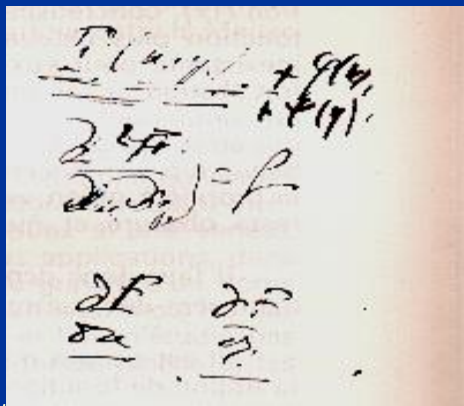 F(x,y) + φ(x)
+ ψ(y).
∂²F
/∂x ∂y = f
∂F ∂F
∂x ∂y